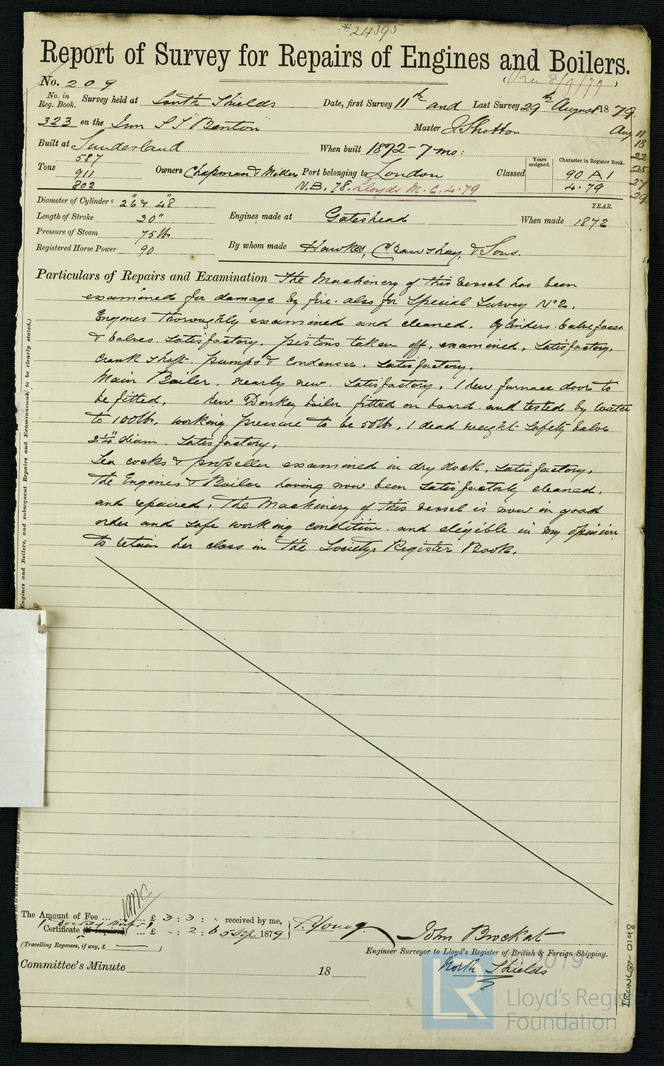 *24395
Report of Survey for Repairs of Engines and Boilers.
No. 209
(Rec 8/9/79)
No. in Reg. Book. Survey held at South Shields Date, first Survey 11th and Last Survey 29th August 1879
323 on the Iron S.S Benton Master J Shotton
Aug 11
18
22
25
27
29
Built at Sunderland When built 1872-7 mo:
Tons 587
911
802
Owners Chapman & Miller Port belonging to London Classed
Years assigned.
Character in Register Book.
90 A1
4.79
N.B. 78. Lloyds M.C. 4.79
Diameter of Cylinders 26 & 48
Length of Stroke 30"
Pressure of Steam 75 lb
Registered Horse Power 90
Engines made at Gateshead When made 1872
YEAR.
By whom made Hawkes, Crawshay, & Sons.
Particulars of Repairs and Examination The Machinery of this vessel has been
examined for damage by fire. also for Special Survey No 2.
Engines thoroughly examined and cleaned. Cylinders. valve faces
& valves. Satisfactory. pistons taken off, examined, Satisfactory.
crank shaft. pumps & condenser. Satisfactory.
Main Boiler. nearly new. Satisfactory. 1 new furnace door to
be fitted. New Donkey boiler fitted on board and tested by water
to 100 lb. working pressure to be 50 lb, 1 dead weight Safety valve
diam. Satisfactory.
Sea cocks & propeller examined in dry dock. Satisfactory.
The Engines & Boiler having now been Satisfactorily cleaned.
and repaired, The Machinery of this vessel is now in good
order and safe working condition and eligible in my opinion
to retain her class in the Society's Register Book.
Engines and Boilers, and subsequent Repairs and Examinations, to be clearly stated.)
LMC
The Amount of Fee ... £ 3 : 3 : - received by me,
Certificate (if required) ... £ - : 2 : 6 5 Sep. 1879
(Travelling Expenses, if any, £
T. Young
John Brockat
Engineer Surveyor to Lloyd's Register of British & Foreign Shipping.
North Shields
Committee's Minute 18
IRON487-0198
2019
LR
Lloyd's Register
Foundation